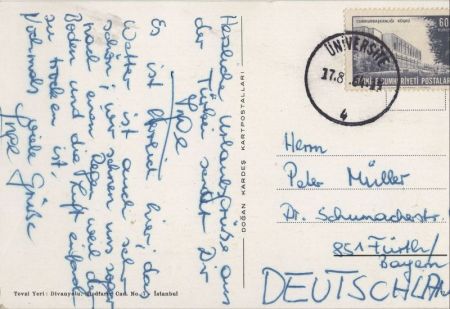 Herzliche Urlaubsgrüße aus
der Türkei sendet Dir
Inge
Es ist herrlich hier, das
Wetter ist auch sehr
schön! Wir sehnen uns sogar
nach einen Regen weil der
Boden und die Luft einfach
zu trocken ist.
Nochmals viele Grüße
Inge
Tevzi Yeri: Divanyolu, Cad. No. İstanbul
DOĞAN KARDEŞ KARTPOSTALLARI
CUMHURBAŞKANLIĞI KÖŞKÜ
60
CUMHURİYETİ POSTALARI
ÜNİVERSİTE
17.8
4
Herrn
Peter Müller
Dr. Schumacherstr.
851 Fürth/
Bayern
DEUTSCHLAND